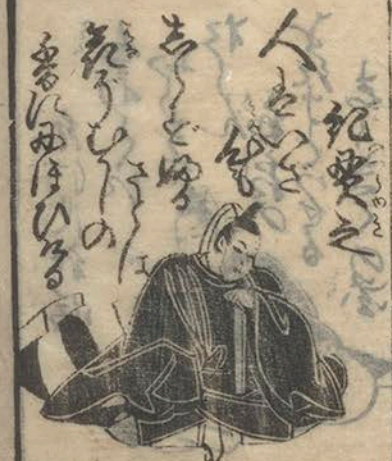 紀貫之
人はいさ
心も
しらずふる
さとは
花ぞむかしの
香ににほひける